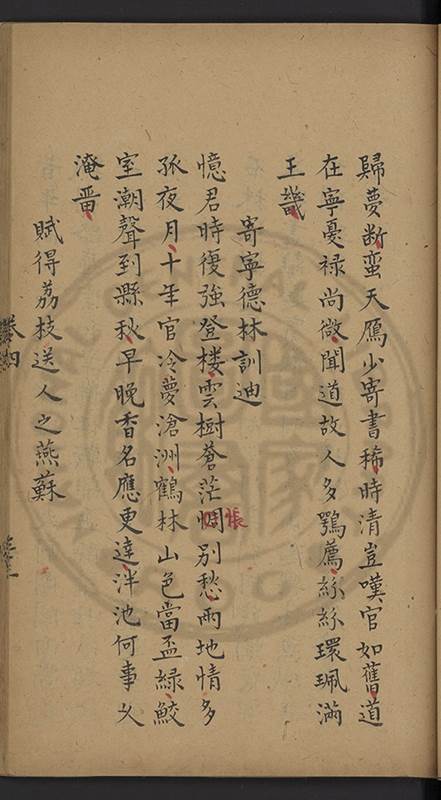 歸夢断蛮天鴈少寄書稀時清豈嘆官如舊道
在寧憂禄尚微聞道故人多鶚薦絲絲環珮滿
王畿
寄寧德林訓迪
憶君時復強登楼雲樹蒼茫惆別愁兩地情多
張
孤夜月十年官冷夢滄洲鶴林山色當盃綠鮫
室潮聲到縣秋早晚香名應更達泮池何事久
淹留
賦得荔枝送人之燕蘇
卷四